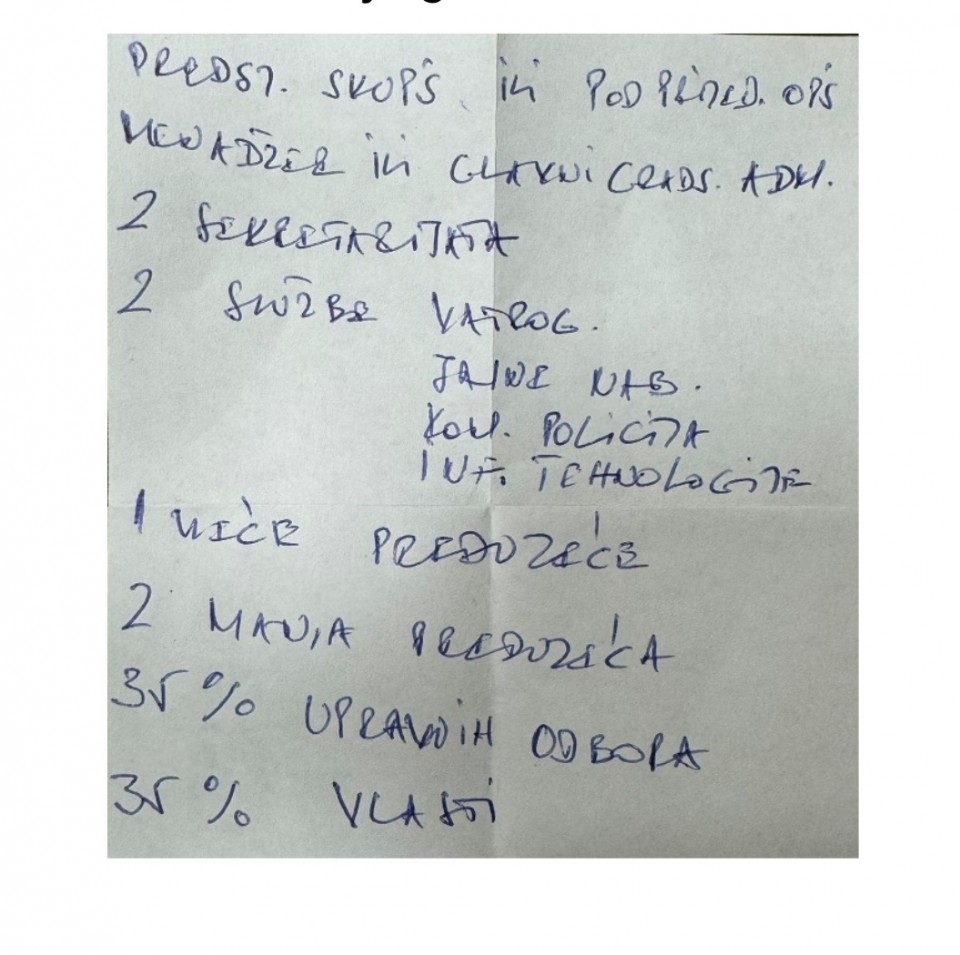 PREDSJ. SKUPŠ. ili PODPREDSJED. OPŠ
MENADŽER ili GLAVNI GRADS. ADM.
2 SEKRETARIJATA
2 SLUŽBE VATROG.
JAVNE NAB.
KOM. POLICIJA
INF. TEHNOLOGIJE
1 VEĆE PREDUZEĆE
2 MANJA PREDUZEĆA
35% UPRAVNIH ODBORA
35% VLASTI